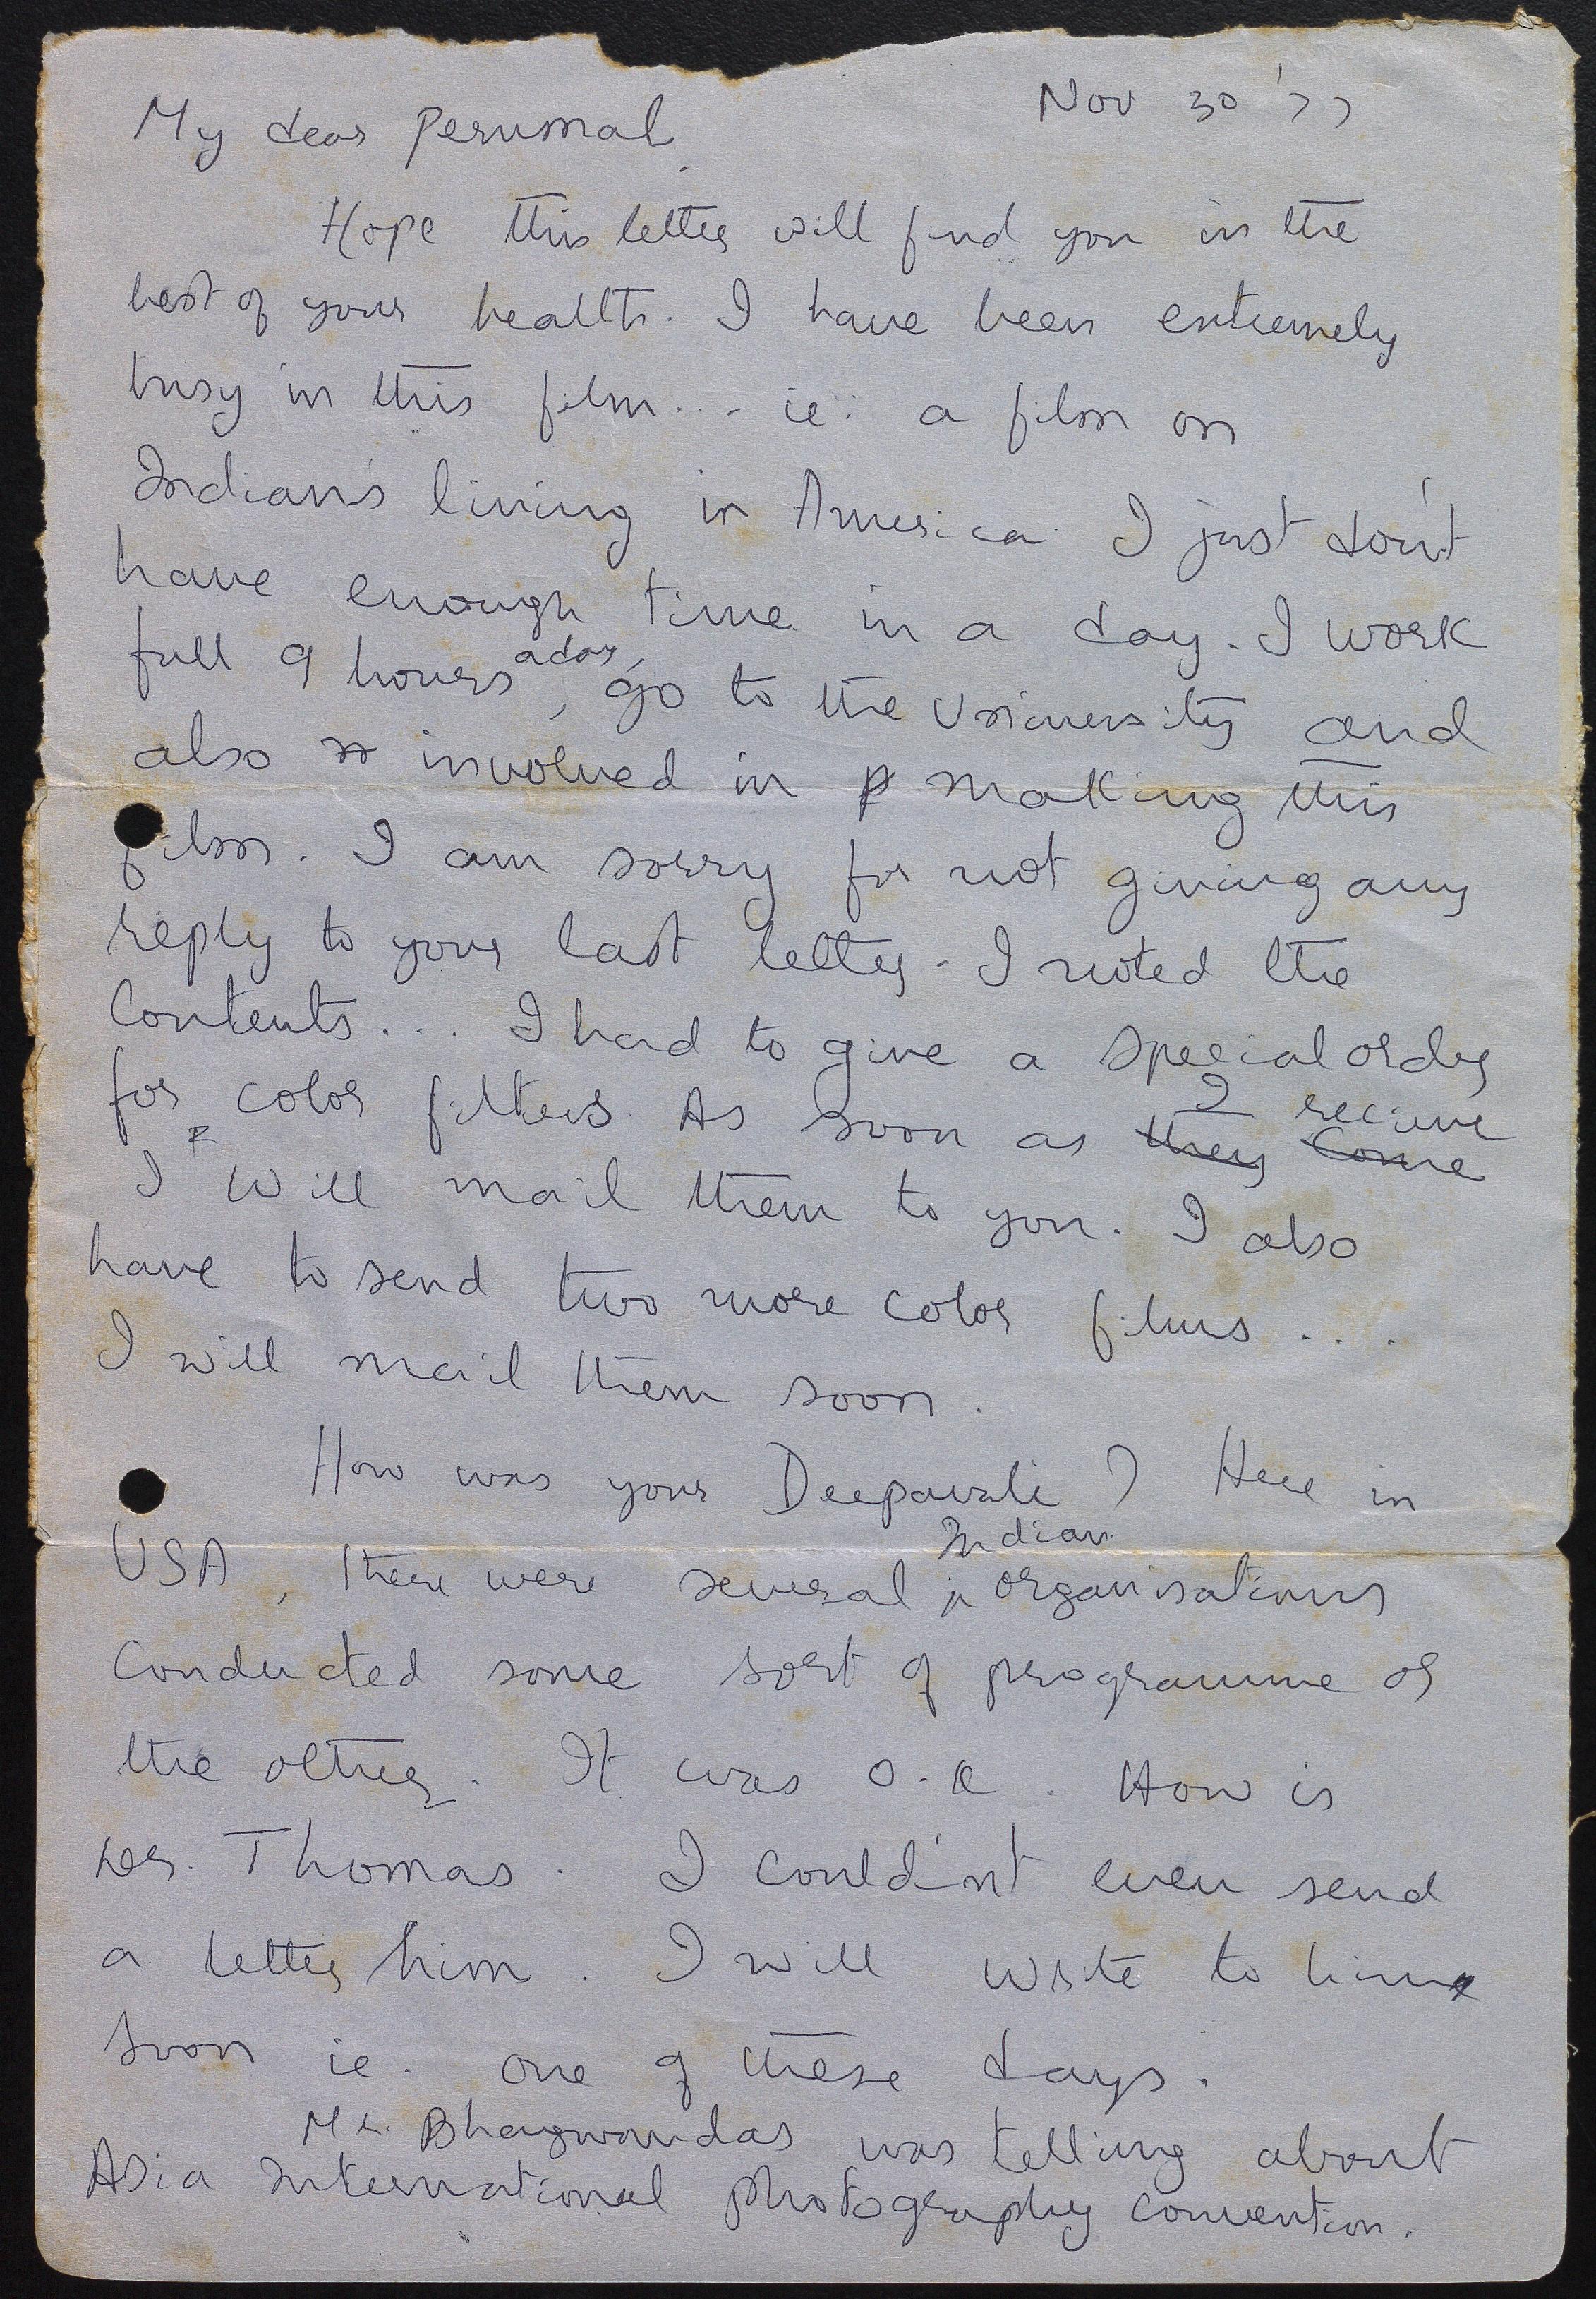 Nov 30 '77
My dear Perumal,
Hope this letter will find you in the
best of your health. I have been extremely
busy in this film... ie. a film on
Indians living in America. I just don't
have enough time in a day. I work
full 9 hours a day, go to the University and
also involved in making this
film. I am sorry for not giving any
reply to your last letter. I noted the
Contents... I had to give a special order
for color filters. As soon as they come I recieve
I will mail them to you. I also
have to send two more color films....
I will mail them soon.
How was your Deepavali? Here in
USA, there were several Indian organisations
Conducted some sort of programme or
the other. It was O.K. How is
Dr. Thomas. I could'nt even send
a letter him. I will write to him
soon ie. one of these days.
Mr. Bhagwandas was telling about
Asia International photography convention.